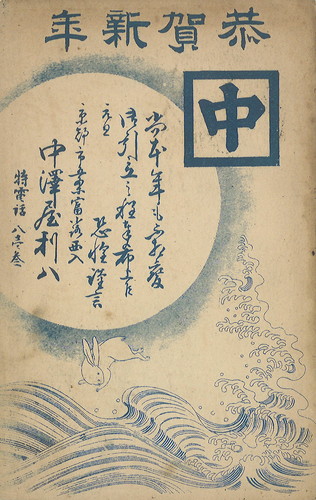 恭賀新年
中
尚本年も不相変
御引立之程奉希上候
元旦 恐惶謹言
京都市五条富小路西入
中澤屋利八
特電話 八壱参